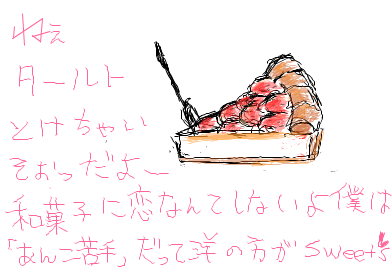 ねぇ
タールト
とけちゃい
そおっだよ〜
和菓子に恋なんてしないよ僕は
「あんこ苦手」だって洋の方がsweets